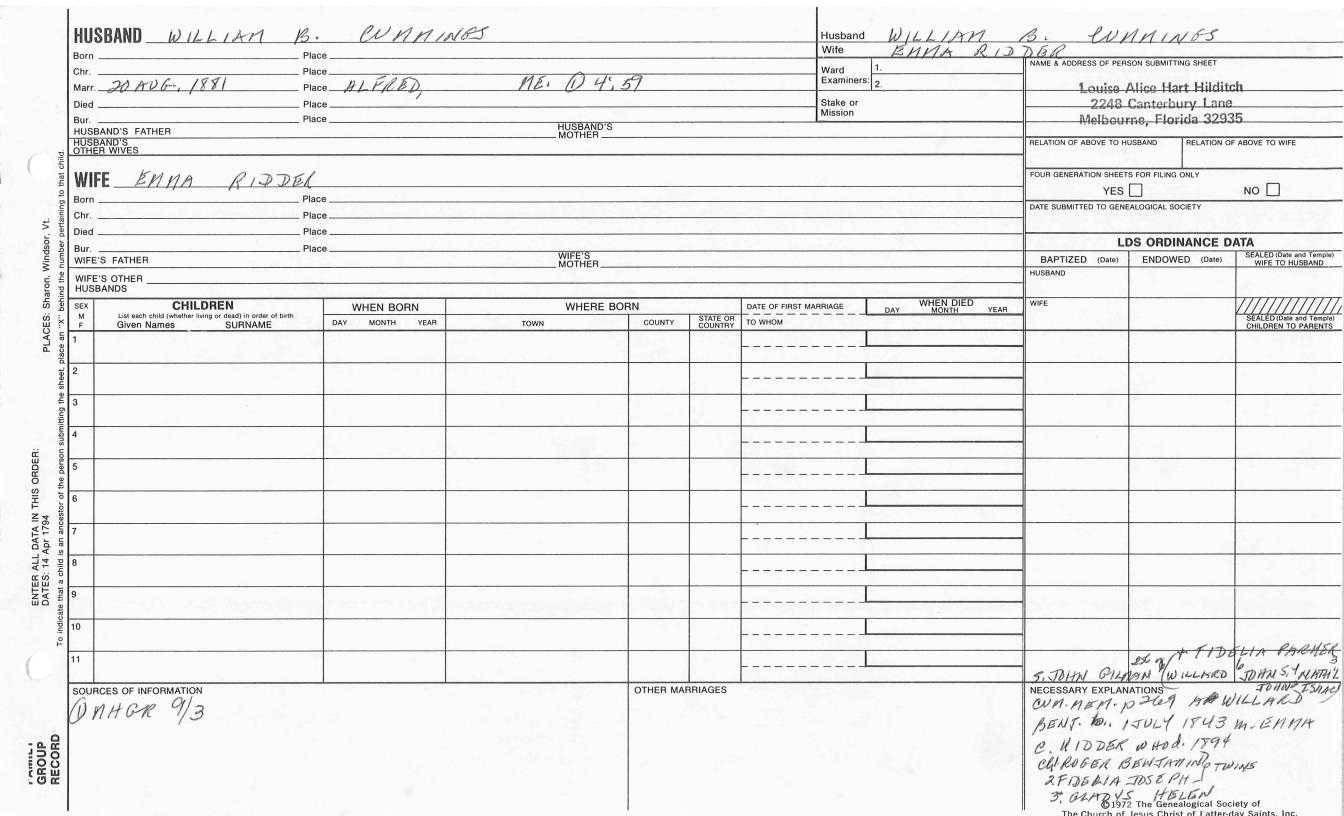 HUSBAND WILLIAM B. CUMMINGS
Born Place
Chr. Place
Marr. 20 AUG. 1881 Place ALFRED, ME. ① 4:59
Died Place
Bur. Place
HUSBAND'S FATHER HUSBAND'S MOTHER
HUSBAND'S OTHER WIVES
WIFE EMMA RIDDER
Born Place
Chr. Place
Died Place
Bur. Place
WIFE'S FATHER WIFE'S MOTHER
WIFE'S OTHER HUSBANDS
Husband WILLIAM B. CUMMINGS
Wife EMMA RIDDER
Ward Examiners: 1.
2.
Stake or Mission
NAME & ADDRESS OF PERSON SUBMITTING SHEET
Louise Alice Hart Hilditch
2248 Canterbury Lane
Melbourne, Florida 32935
RELATION OF ABOVE TO HUSBAND RELATION OF ABOVE TO WIFE
FOUR GENERATION SHEETS FOR FILING ONLY
YES NO
DATE SUBMITTED TO GENEALOGICAL SOCIETY
LDS ORDINANCE DATA
BAPTIZED (Date) ENDOWED (Date) SEALED (Date and Temple) WIFE TO HUSBAND
HUSBAND
WIFE
SEALED (Date and Temple) CHILDREN TO PARENTS
SEX M F
CHILDREN
List each child (whether living or dead) in order of birth
Given Names SURNAME
WHEN BORN
DAY MONTH YEAR
WHERE BORN
TOWN COUNTY STATE OR COUNTRY
DATE OF FIRST MARRIAGE
TO WHOM
WHEN DIED
DAY MONTH YEAR
1
2
3
4
5
6
7
8
9
10
11
SOURCES OF INFORMATION
① NHGR 9/3
OTHER MARRIAGES
+ FIDELIA PARHER
S. JOHN GILMAN WILLARD JOHN S. NATH'L
JOHN ISAAC
NECESSARY EXPLANATIONS
CUM. MEM. p 269 WILLARD
BENJ. b. 1 JULY 1843 m. EMMA
C. RIDDER who d. 1894
Ch 1 ROGER BENJAMIN TWINS
2 FIDELIA JOSEPH
3. GLADYS HELEN
©1972 The Genealogical Society of
The Church of Jesus Christ of Latter-day Saints, Inc.
ENTER ALL DATA IN THIS ORDER:
DATES: 14 Apr 1794 PLACES: Sharon, Windsor, Vt.
To indicate that a child is an ancestor of the person submitting the sheet, place an "X" behind the number pertaining to that child.
FAMILY GROUP RECORD